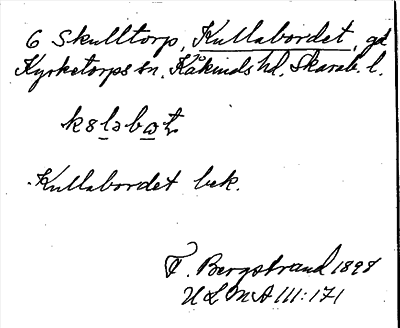 6 Skulltorp, Kullabordet, gd
Kyrketorps sn. Kåkinds hd. Skarab. l.
Kullabordet bek.
F. Bergstrand 1898
ULMA 111:171